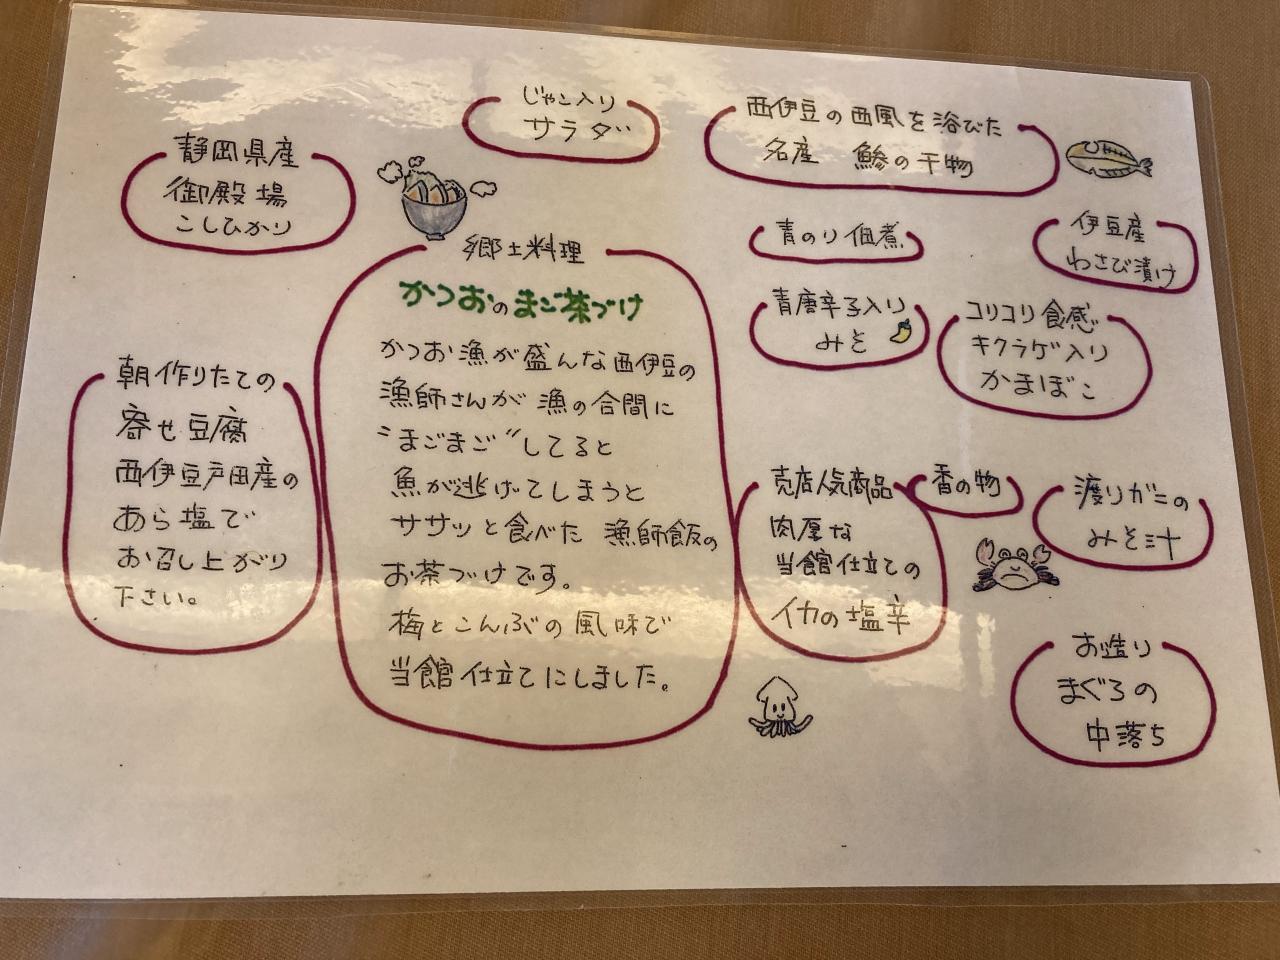 静岡県産
御殿場
こしひかり
じゃこ入り
サラダ
西伊豆の西風を浴びた
名産 鯵の干物
青のり佃煮
伊豆産
わさび漬け
青唐辛子入り
みそ
コリコリ食感
キクラゲ入り
かまぼこ
郷土料理
かつおのまご茶づけ
かつお漁が盛んな西伊豆の
漁師さんが漁の合間に
"まごまご"してると
魚が逃げてしまうと
ササッと食べた 漁師飯の
お茶づけです。
梅とこんぶの風味で
当館仕立てにしました。
朝作りたての
寄せ豆腐
西伊豆戸田産の
あら塩で
お召し上がり
下さい。
売店人気商品
肉厚な
当館仕立ての
イカの塩辛
香の物
渡りガニの
みそ汁
お造り
まぐろの
中落ち